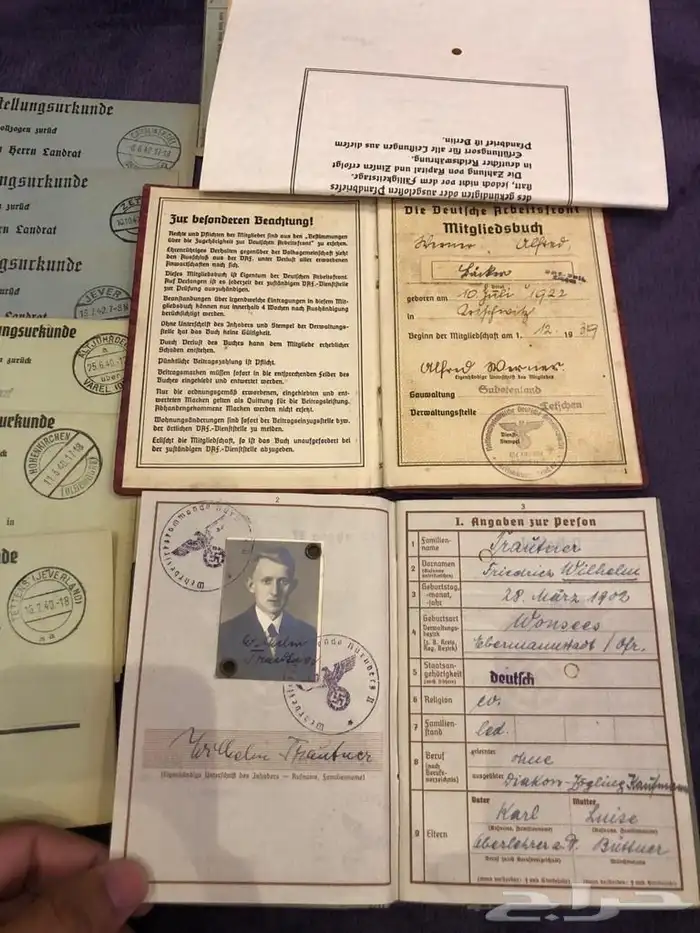 tellungsurkunde
vollzogen zurück
n Herrn Landrat
ngsurkunde
zurück
n Landrat
surkunde
rück
n Landrat
JEVER
ngsurkunde
zurück
25.6.40
VAREL
urkunde
HOHENKIRCHEN
(OLDENBURG)
in
de
TETTENS (JEVERLAND)
16.7.40.-18
aa
des gekündigten oder ausgelosten Pfandbriefes
statt, jedoch nicht vor dem Fälligkeitstage.
Die Zahlung von Kapital und Zinsen erfolgt
in deutscher Reichswährung.
Erfüllungsort für alle Leistungen aus diesem
Pfandbrief ist Berlin.
Zur besonderen Beachtung!
Rechte und Pflichten der Mitglieder sind aus den „Bestimmungen
über die Zugehörigkeit zur Deutschen Arbeitsfront" zu ersehen.
Ehrenrühriges Verhalten gegenüber der Volksgemeinschaft zieht
den Ausschluß aus der DAF. unter Verlust aller erworbenen
Anwartschaften nach sich.
Dieses Mitgliedsbuch ist Eigentum der Deutschen Arbeitsfront.
Auf Verlangen ist es jederzeit der zuständigen DAF.-Dienststelle
zur Prüfung auszuhändigen.
Beanstandungen über irgendwelche Eintragungen in diesem Mit-
gliedsbuch können nur innerhalb 4 Wochen nach Aushändigung
berücksichtigt werden.
Ohne Unterschrift des Inhabers und Stempel der Verwaltungs-
stelle hat das Buch keine Gültigkeit.
Durch Verlust des Buches kann dem Mitglied erheblicher
Schaden entstehen.
Pünktliche Beitragszahlung ist Pflicht.
Beitragsmarken müssen sofort in die entsprechenden Felder des
Buches eingeklebt und entwertet werden.
Nur die ordnungsgemäß erworbenen, eingeklebten und ent-
werteten Marken gelten als Quittung für die Beitragsleistung.
Abhandengekommene Marken werden nicht ersetzt.
Wohnungsänderungen sind sofort der Beitragseinzugsstelle bzw.
der örtlichen DAF.-Dienststelle zu melden.
Erlischt die Mitgliedschaft, so ist das Buch unaufgefordert bei
der zuständigen DAF.-Dienststelle abzugeben.
Die Deutsche Arbeitsfront
Mitgliedsbuch
Werner Alfred
geboren am 10. Juli 1922
in
Beginn der Mitgliedschaft am 1. 12. 19 39
Alfred Werner
(Eigenhändige Unterschrift des Mitgliedes)
Gauwaltung Sudetenland
Verwaltungsstelle Tetschen
1
2
Wilhelm
Trautner
Wilhelm Trautner
(Eigenhändige Unterschrift des Inhabers — Rufname, Familienname)
3
I. Angaben zur Person
1 Familien-
name Trautner
2 Vornamen
(Rufname
unterstreichen) Friedrich Wilhelm
3 Geburtstag,
-monat,
-jahr 28. März 1902
4 Geburtsort
Verwaltungs-
bezirk
(z. B. Kreis,
Reg. Bezirk) Wonsees
Ebermannstadt / Ofr.
5 Staatsan-
gehörigkeit
deutsch
6 Religion ev.
7 Familien-
stand led.
8 Beruf
(nach
Berufs-
verzeichnis)
gelernter ohne
ausgeübter Diakon-Zögling Kaufmann
9 Eltern
Vater Mutter
Karl Luise
(Rufname, Familienname) (Rufname, Familienname)
Oberlehrer a. D. Büttner
Mädchenname
حراج